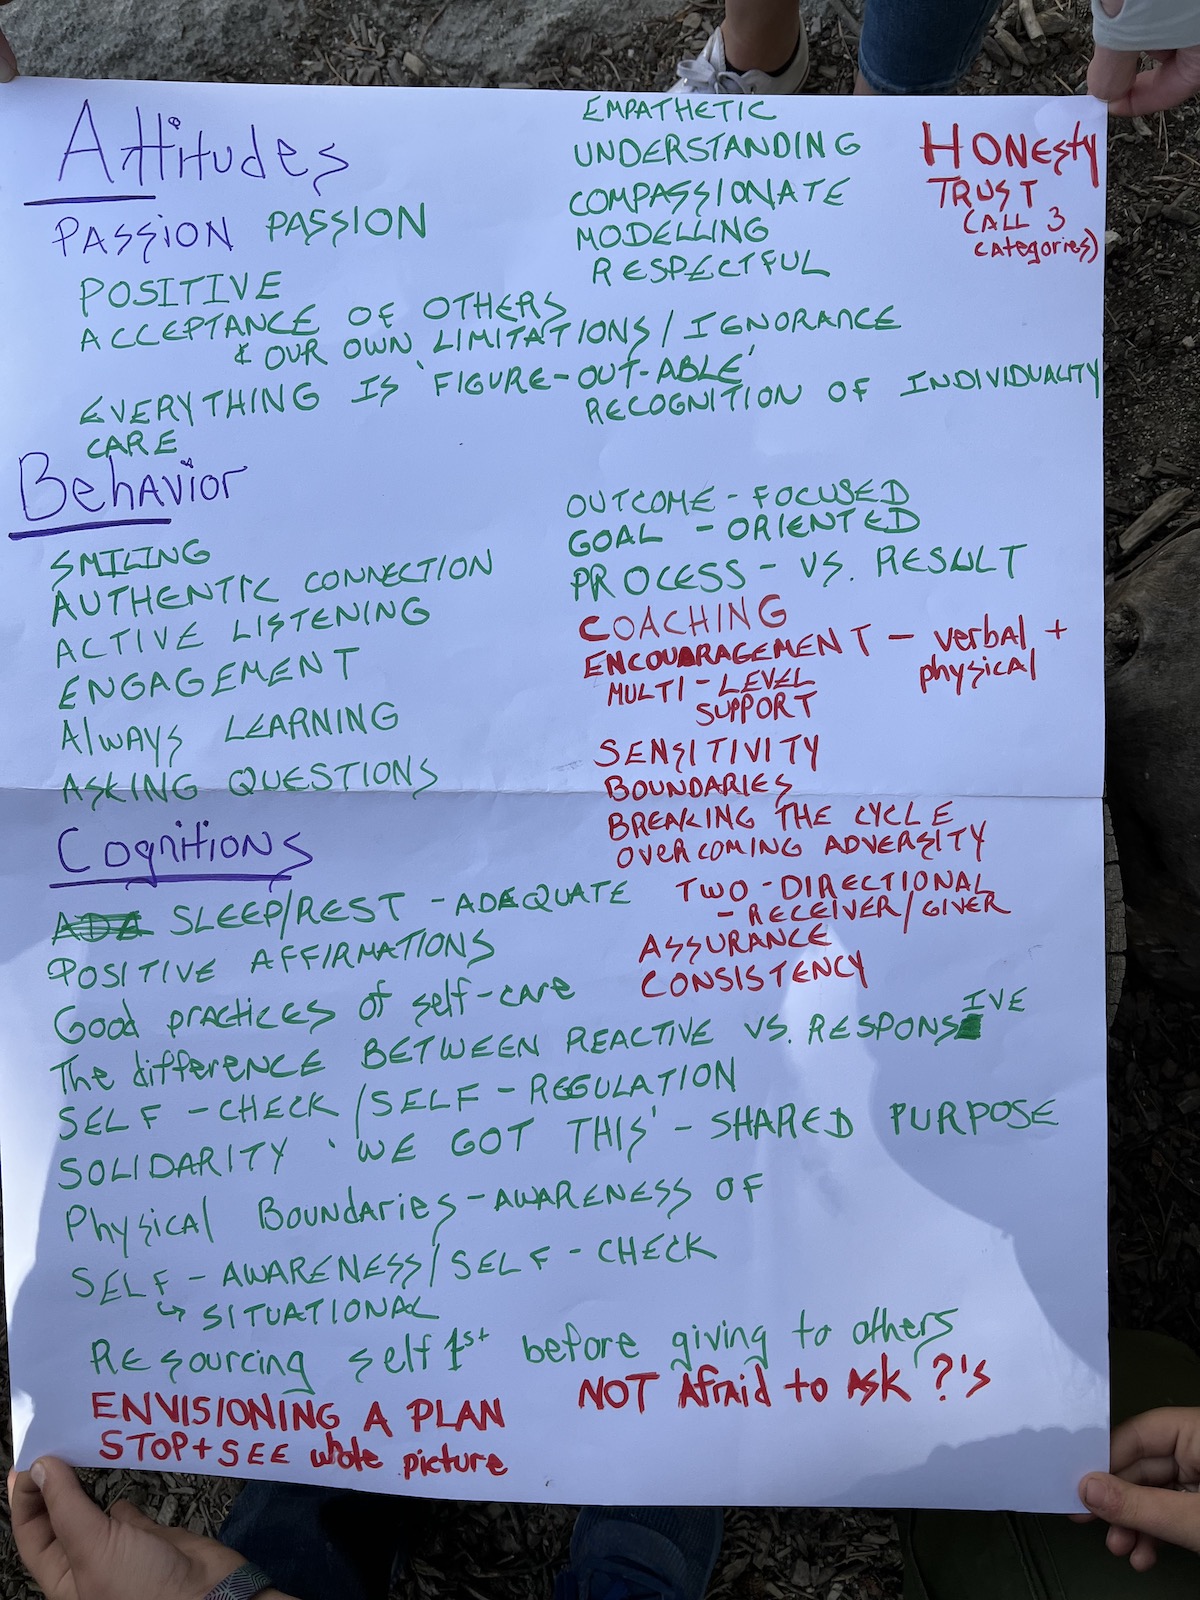 Attitudes
PASSION PASSION
POSITIVE
ACCEPTANCE OF OTHERS
& OUR OWN LIMITATIONS / IGNORANCE
EVERYTHING IS 'FIGURE-OUT-ABLE'
RECOGNITION OF INDIVIDUALITY
CARE
EMPATHETIC
UNDERSTANDING
COMPASSIONATE
MODELLING
RESPECTFUL
HONEsty
TRUST
(ALL 3
categories)
Behavior
SMILING
AUTHENTIC CONNECTION
ACTIVE LISTENING
ENGAGEMENT
AlWAYS LEARNING
ASKING QUESTIONS
OUTCOME - FOCUSED
GOAL - ORIENTED
PROCESS - VS. RESULT
COACHING
ENCOURAGEMENT - verbal +
physical
MULTI-LEVEL
SUPPORT
SENSITIVITY
BOUNDARIES
BREAKING THE CYCLE
OVERCOMING ADVERSITY
TWO-DIRECTIONAL
- RECEIVER/GIVER
ASSURANCE
CONSISTENCY
Cognitions
SLEEP/REST - ADEQUATE
POSITIVE AFFIRMATIONS
Good practices of self-care
The difference BETWEEN REACTIVE VS. RESPONSIVE
SELF - CHECK / SELF - REGULATION
SOLIDARITY 'WE GOT THIS' - SHARED PURPOSE
Physical Boundaries - AWARENESS OF
SELF - AWARENESS / SELF - CHECK
↳ SITUATIONAL
REsourcing self 1st before giving to others
ENVISIONING A PLAN
NOT Afraid to ASK ?'s
STOP + SEE whole picture